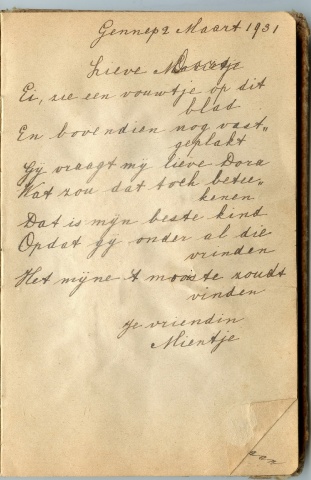 Gennep 2 Maart 1931
Lieve Doortje
Ei, zie een vouwtje op dit
blad
En bovendien nog vast„
geplakt
Gij vraagt mij lieve Dora
Wat zou dat toch betee„
kenen
Dat is mijn beste kind
Opdat gij onder al die
vrinden
Het mijne 't mooiste zoudt
vinden
Je vriendin
Mientje